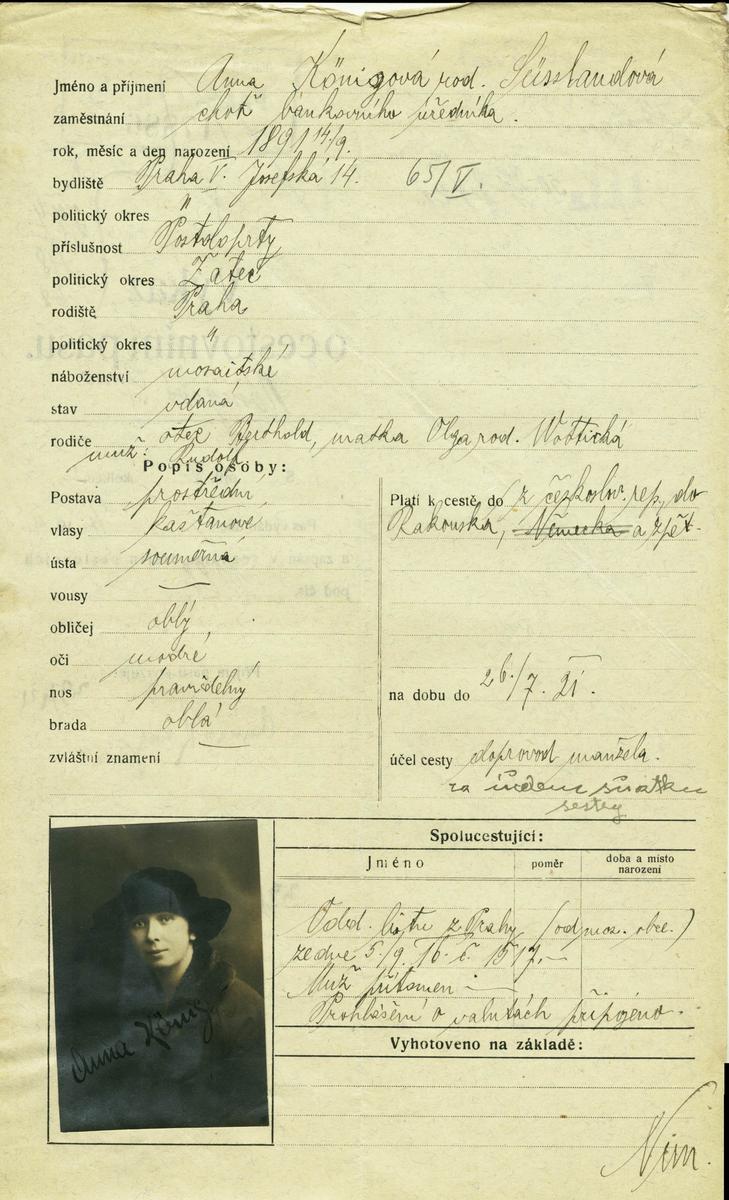 Jméno a příjmení Anna Königová rod. Süsslandová
zaměstnání choť bankovního úředníka.
rok, měsíc a den narození 1891 14/9.
bydliště Praha V. Josefská 14. 65/V.
politický okres "
příslušnost Postoloprty
politický okres Žatec
rodiště Praha
politický okres "
náboženství mosaitské
stav vdaná
rodiče otec Berthold, matka Olga rod. Wottická
muž: Rudolf
Popis osoby:
Postava prostřední
vlasy kaštanové
ústa souměrná
vousy —
obličej oblý
oči modré
nos pravidelný
brada oblá
zvláštní znamení —
Platí k cestě do (z českoslov. rep. do
Rakouska, Německa a zpět.
na dobu do 26/7. 21.
účel cesty doprovod manžela.
za účelem sňatku
sestry
Spolucestující:
Jméno poměr doba a místo narození
Odd. listu z Prahy (od moz. obce.)
ze dne 5/9. 16. č. 157.—
Muž přítomen —
Prohlášení o valutách připojeno.
Vyhotoveno na základě:
Anna König